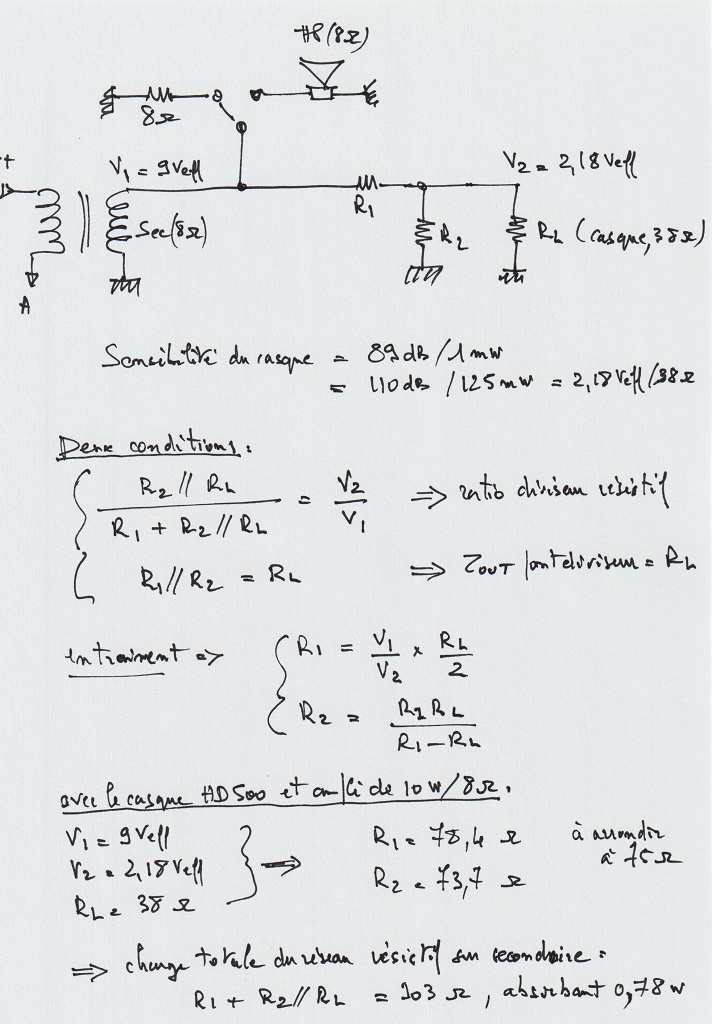 HP (8Ω)
8Ω
V1 = 9Veff
V2 = 2,18Veff
R1
Sec (8Ω)
R2
RL (casque, 38Ω)
A
Sensibilité du casque = 89 dB / 1 mw
= 110 dB / 125 mw = 2,18 Veff / 38Ω
Deux conditions :
R2 // RL / R1 + R2 // RL = V2 / V1 ⇒ ratio diviseur résistif
R1 // R2 = RL ⇒ ZOUT pont diviseur = RL
entrainent ⇒
R1 = V1 / V2 × RL / 2
R2 = R1 RL / R1 - RL
avec le casque HD500 et ampli de 10 W / 8Ω .
V1 = 9 Veff
V2 = 2,18 Veff
RL = 38 Ω
⇒
R1 = 78,4 Ω
R2 = 73,7 Ω
à arrondir
à 75Ω
⇒ charge totale du réseau résistif sur secondaire :
R1 + R2 // RL = 103 Ω , absorbant 0,78 W